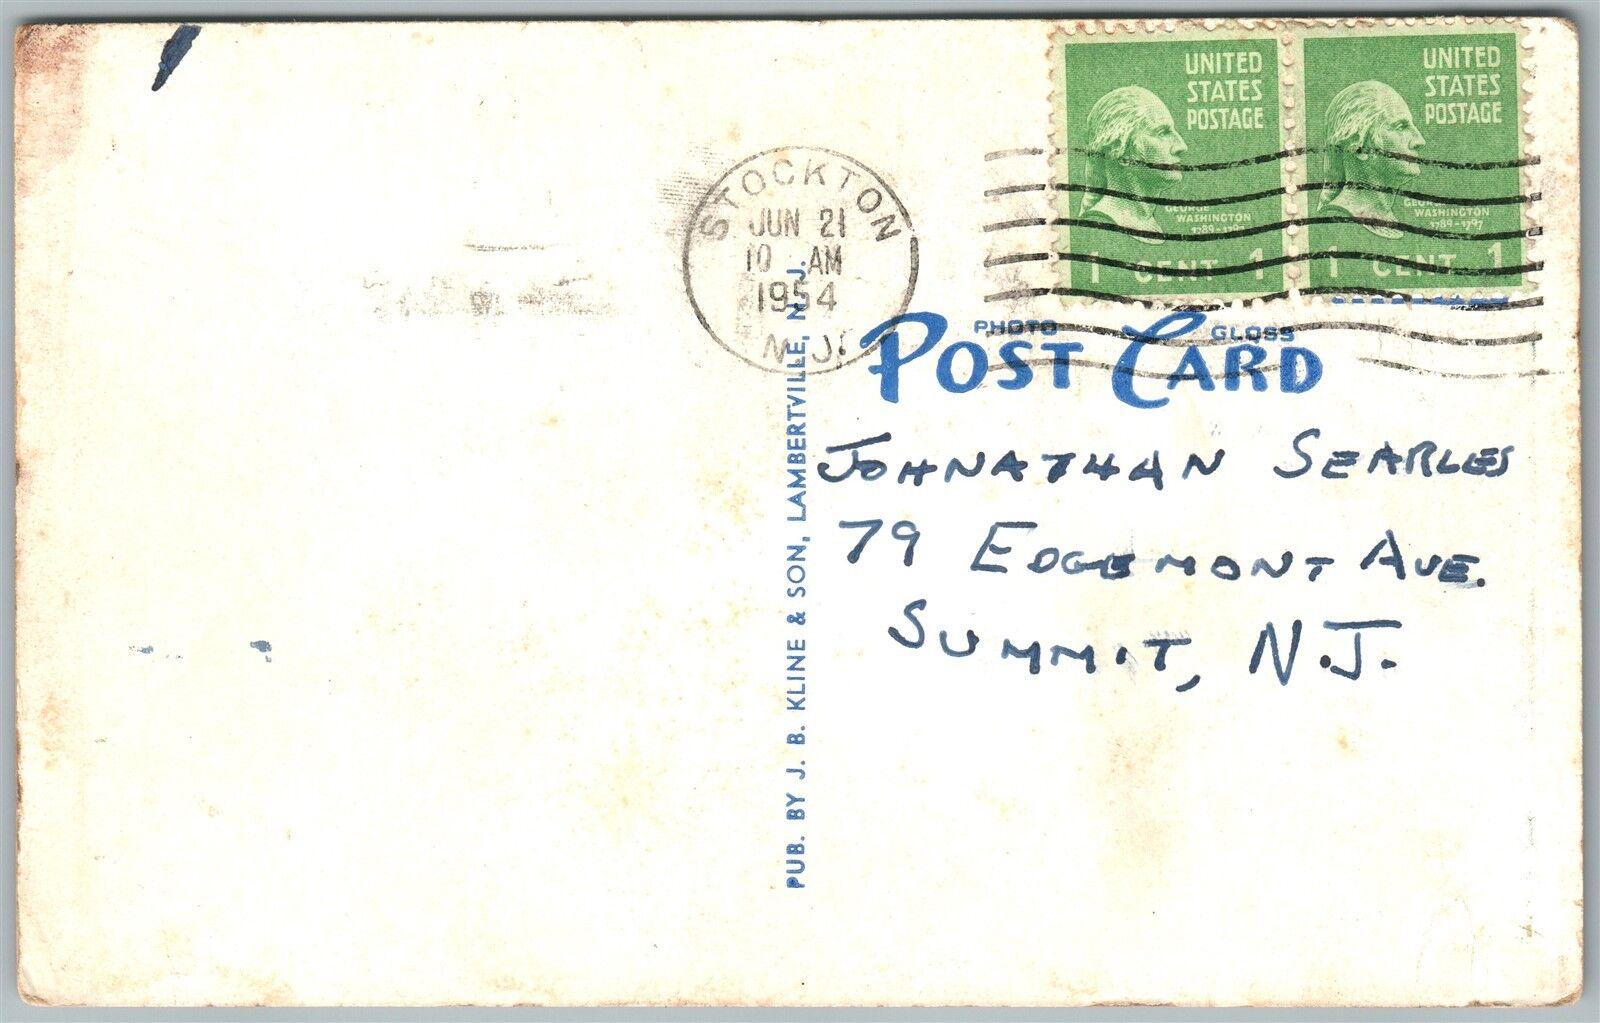 UNITED
STATES
POSTAGE
GEORGE
WASHINGTON
1 CENT 1
UNITED
STATES
POSTAGE
GEORGE
WASHINGTON
1789-1797
1 CENT 1
STOCKTON
JUN 21
10 AM
1954
N.J.
PHOTO GLOSS
POST CARD
PUB. BY J. B. KLINE & SON, LAMBERTVILLE, N.J.
JOHNATHAN SEARLES
79 EDGEMONT AVE.
SUMMIT, N.J.